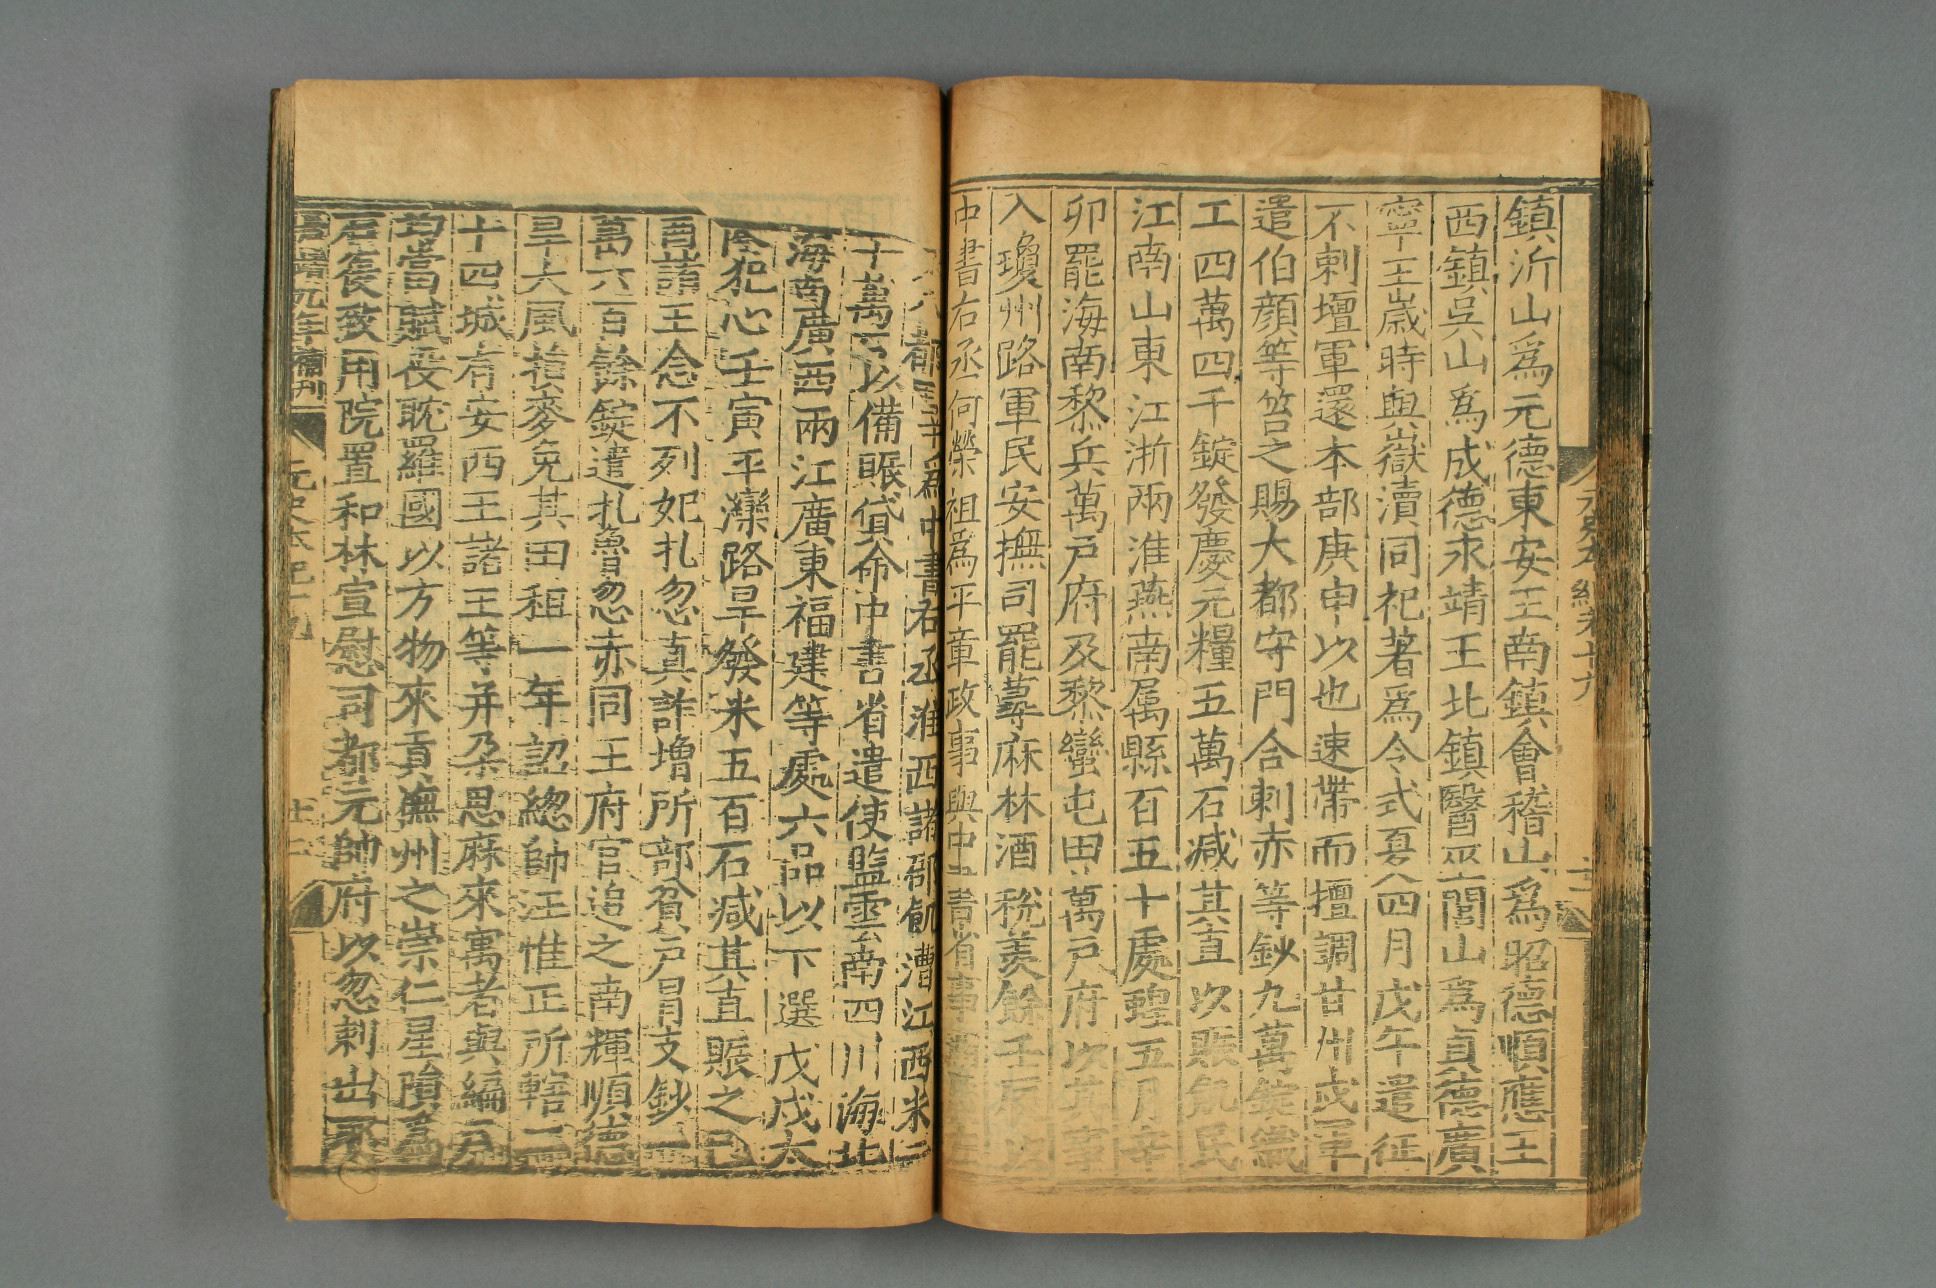 鎮沂山爲元德東安王南鎮會稽山爲昭德順應王
西鎮吳山爲成德永靖王北鎮醫巫閭山爲貞德廣
寧王歲時與嶽瀆同祀著爲令式夏四月戊午遣征
不剌壇軍還本部庚申以也速帶而擅調甘州戍軍
遣伯顏等笞之賜大都守門合剌赤等鈔九萬錠織
工四萬四千錠發慶元糧五萬石減其直以賑飢民
江南山東江浙兩淮燕南属縣百五十處蝗五月辛
卯罷海南黎兵萬戶府及黎蠻屯田萬戶府以其事
入瓊州路軍民安撫司罷蕁麻林酒稅羨餘壬辰以
中書右丞何榮祖爲平章政事與中書省事
爲中書右丞淮西諸郡飢漕江西米二
十萬石以備賑貸命中書省遣使監雲南四川海北
海南廣西兩江廣東福建等處六品以下選戊戌太
陰犯心壬寅平灤路旱發米五百石減其直賑之己
酉諸王念不列妃扎忽真詐增所部貧戶冒支鈔一
萬六百餘錠遣扎魯忽赤同王府官追之南輝順德
旱大風損麥免其田租一年詔緫帥汪惟正所轄二
十四城有安西王諸王等并朶思麻來寓者與編民
均當賦役耽羅國以方物來貢撫州之崇仁星隕爲
石復致用院置和林宣慰司都元帥府以忽剌出
元史本紀卷十九
嘉靖九年補刊
元史本紀十九
十二